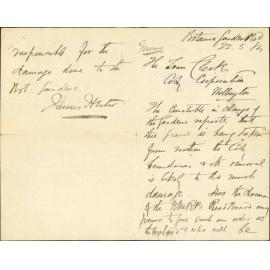 Botanic Gardens
22.5.
Memo
The Town Clerk
City Corporation
Wellington
The Constable in charge of
the Gardens reports that
the gravel is being taken
from within the City
boundaries & its removal
is likely to do much
damage. Has the Chairman
of the Road Board any
power to give such an order as
& who will be
responsible for the
damage done to the
Bot. Gardens.
James Hector